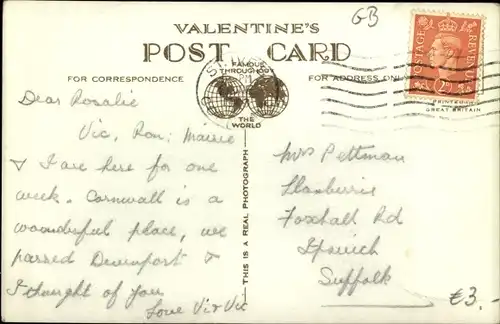 GB
VALENTINE'S
POST CARD
FAMOUS
THROUGHOUT
THE
WORLD
FOR CORRESPONDENCE
FOR ADDRESS ONLY
POSTAGE REVENUE
2D
PRINTED IN
GREAT BRITAIN
THIS IS A REAL PHOTOGRAPH
Dear Rosalie
Vic, Ron, Mairie
& I are here for one
week. Cornwall is a
woonderful place, we
passed Devenport &
I thought of you
Love Viv Vic
Mrs Pettman
Llanberris
Foxhall Rd
Ipswich
Suffolk
£3.-